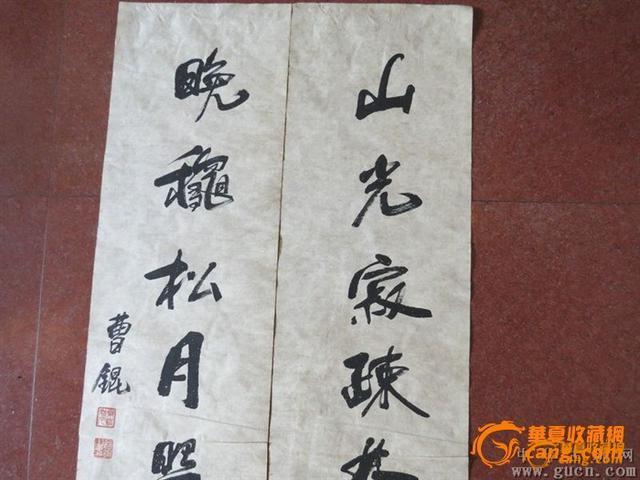 山光寂疎
晚穐松月照
曹錕
華夏收藏網
cang.com
www.gucn.com